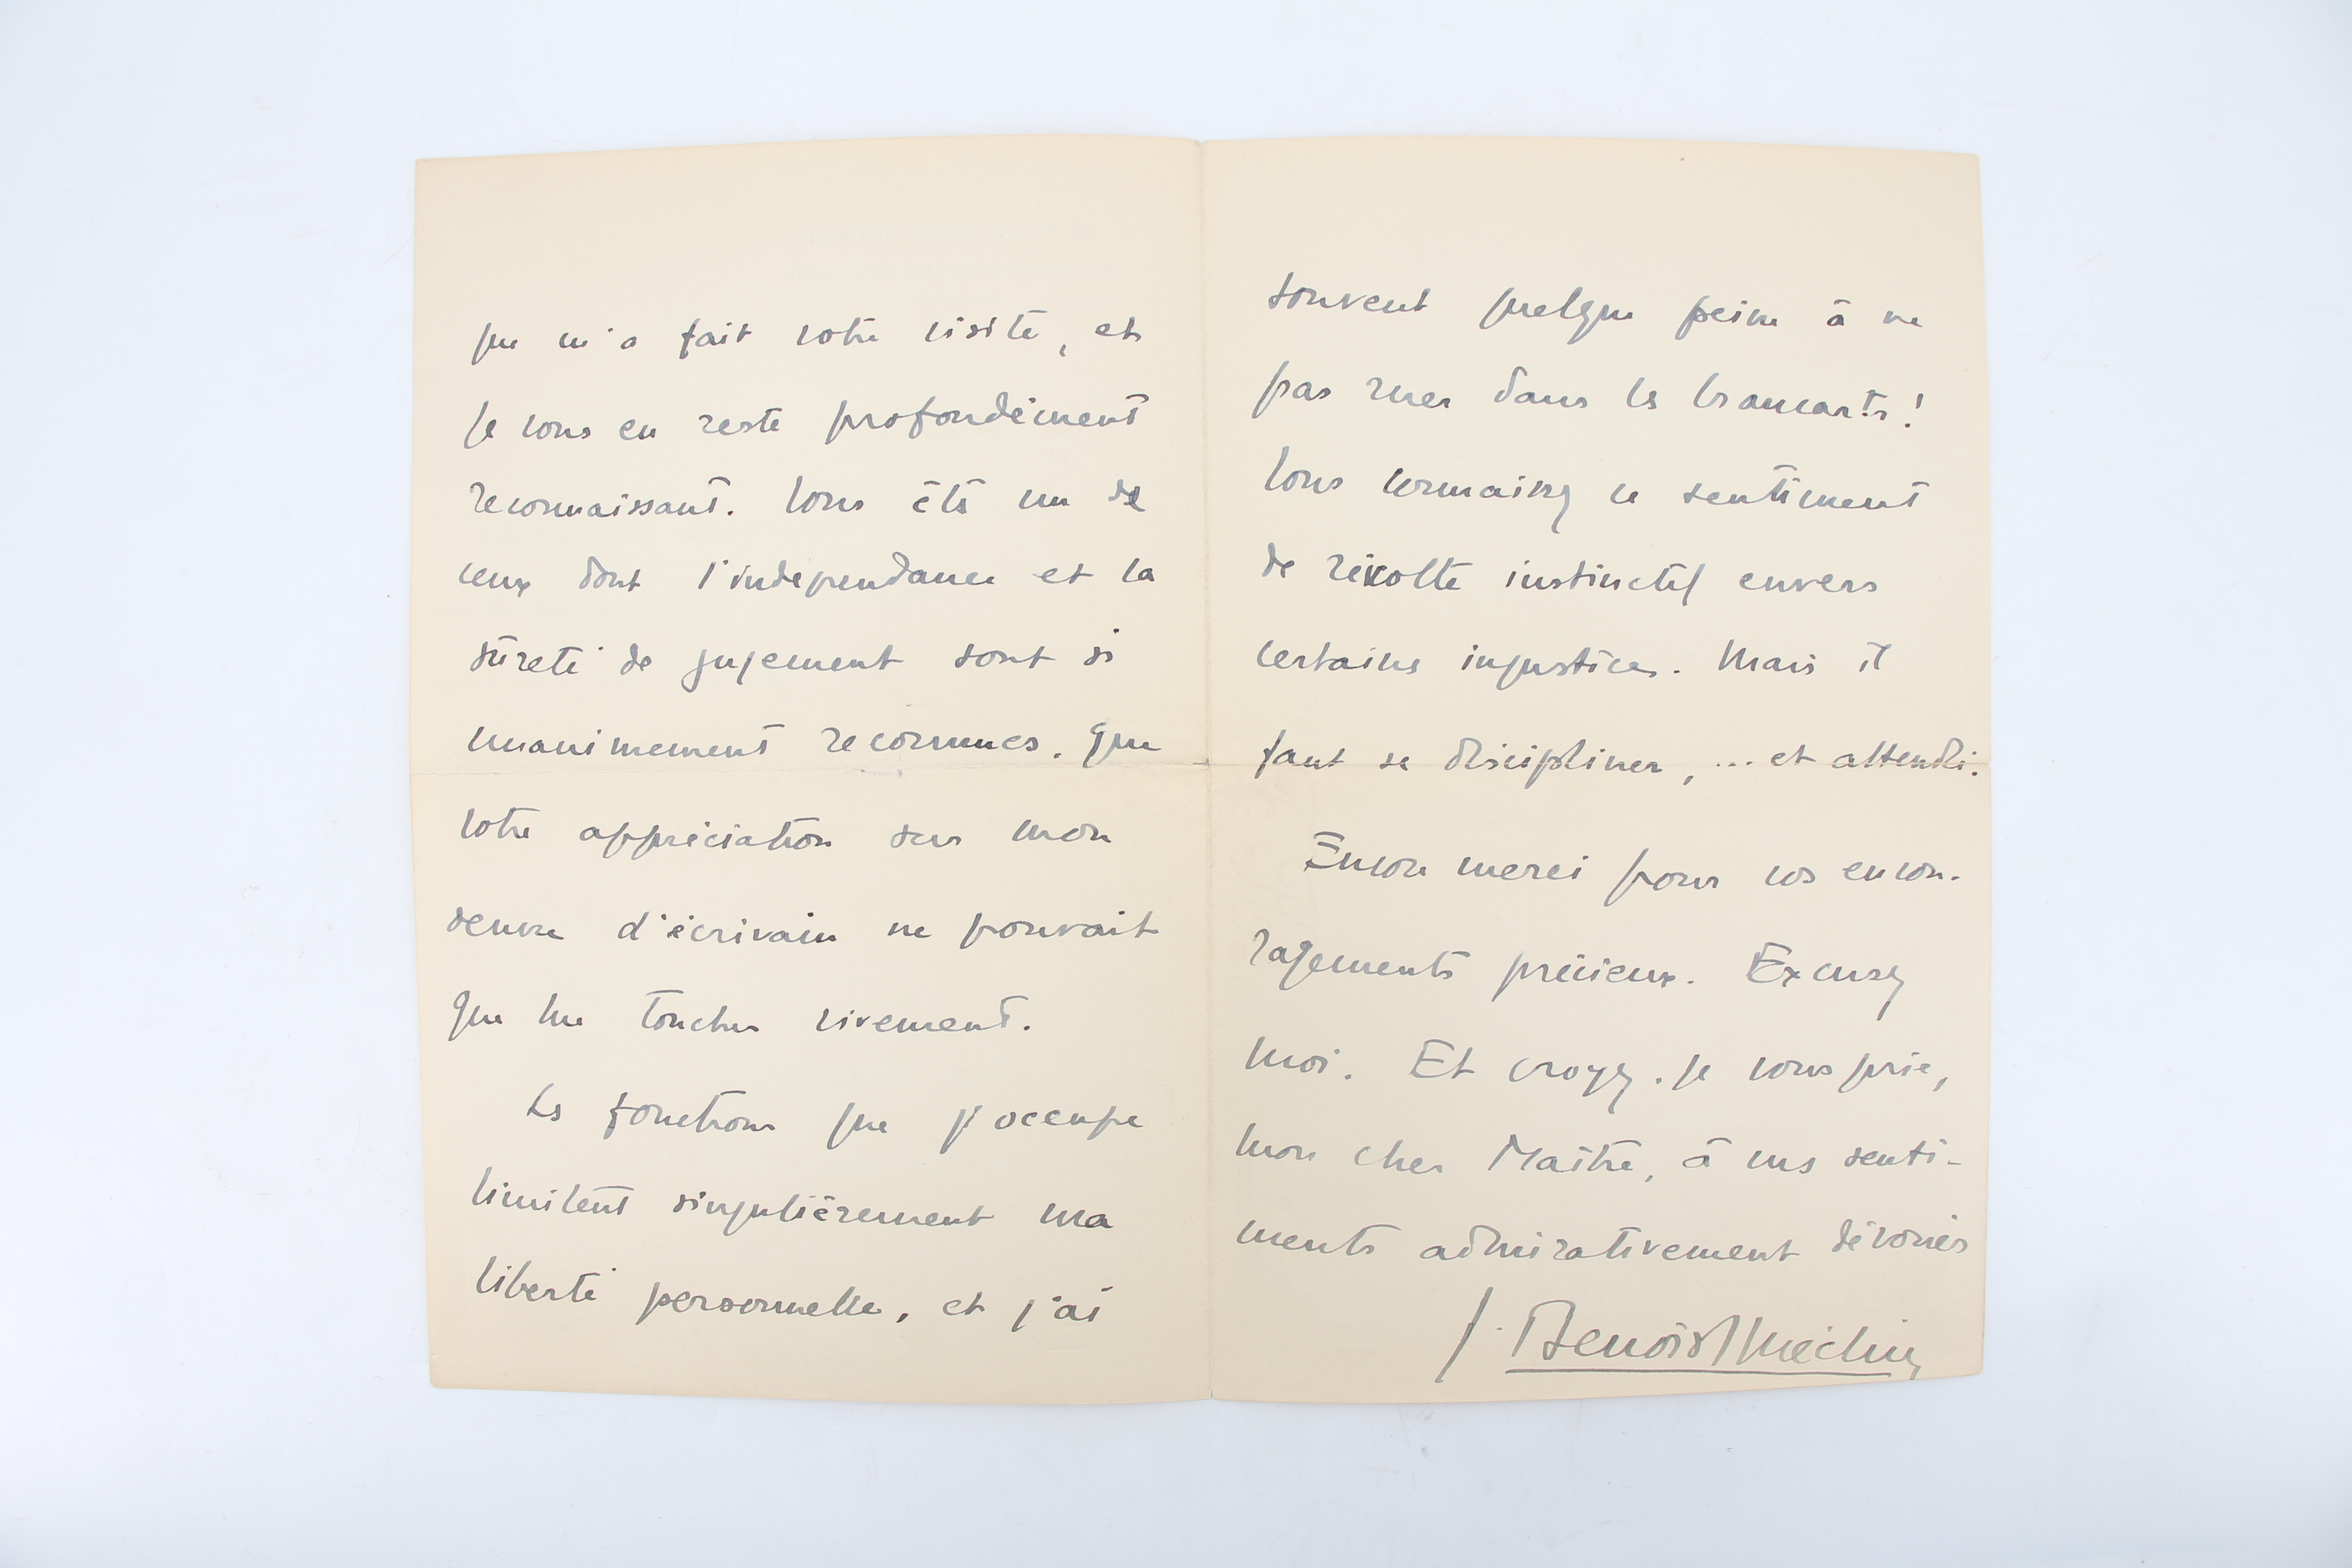 que m'a fait votre visite, et
je vous en reste profondément
reconnaissant. Vous êtes un de
ceux dont l'indépendance et la
sûreté de jugement sont si
unanimement reconnues, que
votre appréciation sur mon
œuvre d'écrivain ne pouvait
que me toucher vivement.
Les fonctions que j'occupe
limitent singulièrement ma
liberté personnelle, et j'ai
souvent quelque peine à ne
pas ruer dans les brancarts!
Vous connaissez ce sentiment
de révolte instinctif envers
certaines injustices. Mais il
faut se discipliner, ... et attendre.
Encore merci pour vos encou-
ragements précieux. Excusez
moi. Et croyez, je vous prie,
mon cher Maître, à mes senti-
ments admirativement dévoués
J. Benoist Méchin